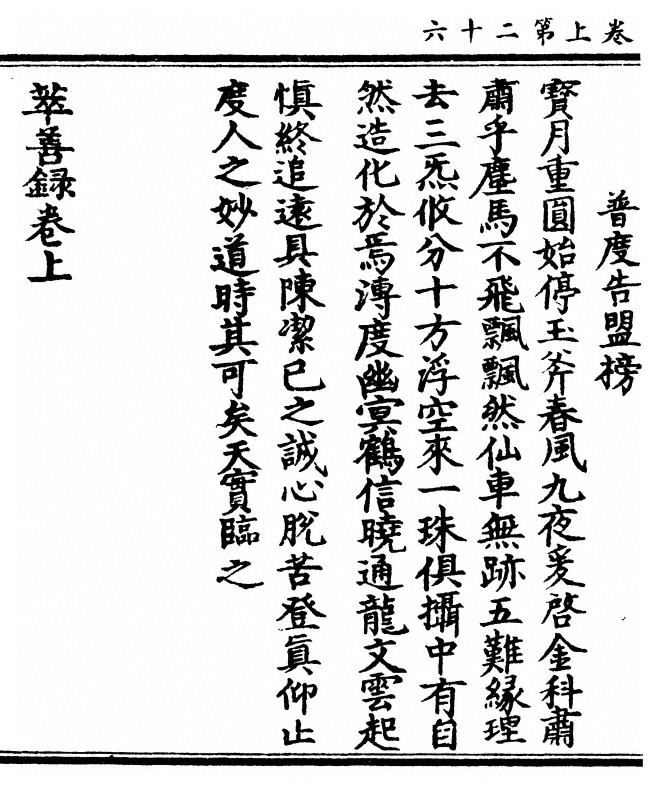 卷上第二十六
普度告盟榜
寶月重圓始停玉斧春風九夜爰啓金科肅
肅乎塵馬不飛飄飄然仙車無跡五難緣理
去三炁攸分十方浮空來一珠俱攝中有自
然造化於焉溥度幽冥鶴信曉通龍文雲起
慎終追遠具陳潔已之誠心脫苦登眞仰止
度人之妙道時其可矣天實臨之
萃善録卷上